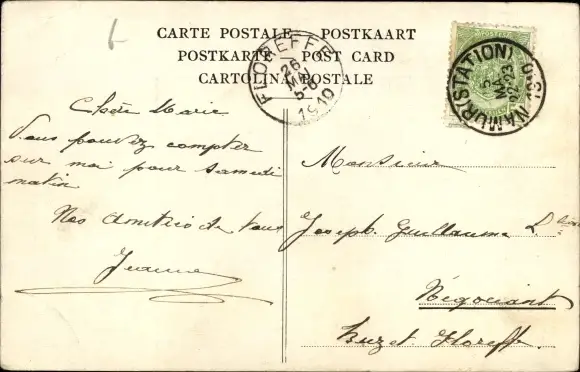 CARTE POSTALE POSTKAART
POSTKARTE POST CARD
CARTOLINA POSTALE
FLOREFFE
26
MAI
5-6
1910
NAMUR (STATION)
Chère Marie
Vous pouvez compter
sur moi pour samedi
matin
Nos amitiés de tous
Jeanne
Monsieur
Joseph Guillaume
Négociant
Buzet Floreffe